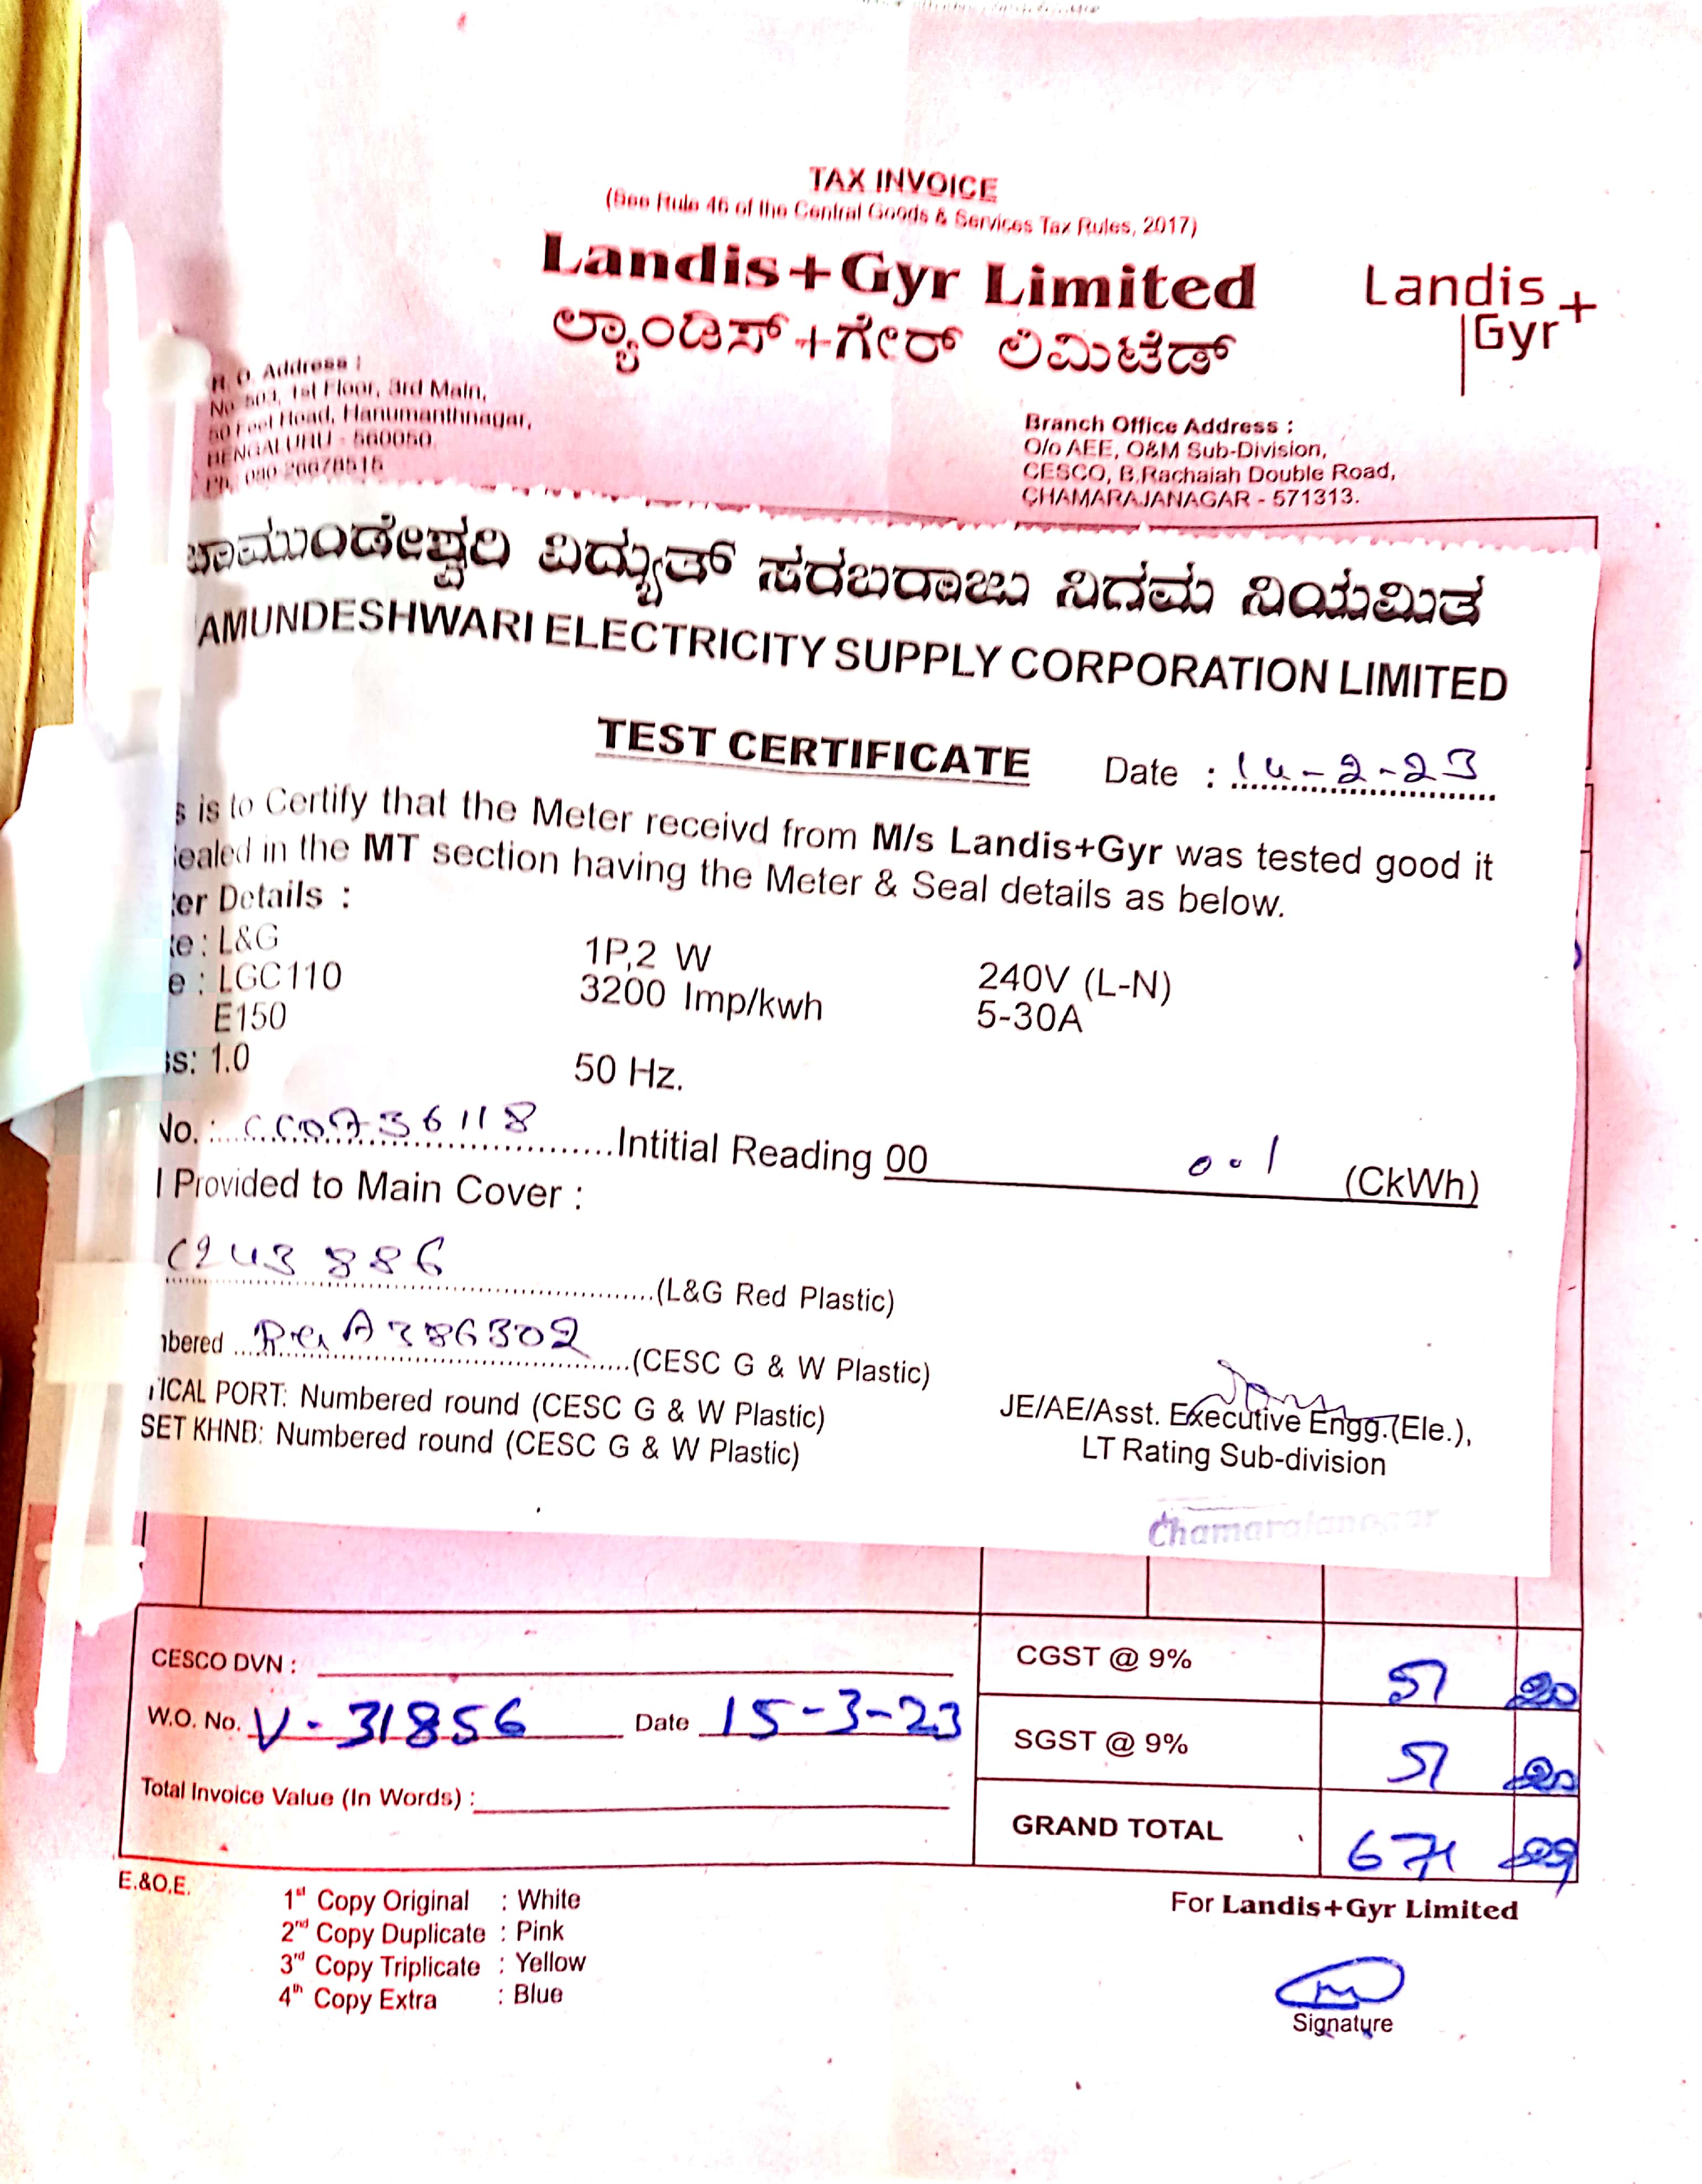 TAX INVOICE
(See Rule 46 of the Central Goods & Services Tax Rules, 2017)
Landis+Gyr Limited
ಲ್ಯಾಂಡಿಸ್+ಗೇರ್ ಲಿಮಿಟೆಡ್
Landis+
Gyr
R. O. Address :
No 503, 1st Floor, 3rd Main,
50 Feet Road, Hanumanthnagar,
BENGALURU - 560050.
Ph. 080-26678515
Branch Office Address :
O/o AEE, O&M Sub-Division,
CESCO, B.Rachaiah Double Road,
CHAMARAJANAGAR - 571313.
ಚಾಮುಂಡೇಶ್ವರಿ ವಿದ್ಯುತ್ ಸರಬರಾಜು ನಿಗಮ ನಿಯಮಿತ
AMUNDESHWARI ELECTRICITY SUPPLY CORPORATION LIMITED
TEST CERTIFICATE Date : 14-2-23
s is to Certify that the Meter receivd from M/s Landis+Gyr was tested good it
ealed in the MT section having the Meter & Seal details as below.
er Details :
e : L&G 1P,2 W 240V (L-N)
e : LGC110 3200 Imp/kwh 5-30A
E150
ss: 1.0 50 Hz.
No. : Intitial Reading 00 0.1 (CkWh)
l Provided to Main Cover :
C243886 (L&G Red Plastic)
bered (CESC G & W Plastic)
TICAL PORT: Numbered round (CESC G & W Plastic)
SET KHNB: Numbered round (CESC G & W Plastic)
JE/AE/Asst. Executive Engg.(Ele.),
LT Rating Sub-division
Chamarajanagar
CESCO DVN :
W.O. No. V-31856 Date 15-3-23
Total Invoice Value (In Words) :
CGST @ 9% 51 20
SGST @ 9% 51 20
GRAND TOTAL 671
E.&O.E.
1st Copy Original : White
2nd Copy Duplicate : Pink
3rd Copy Triplicate : Yellow
4th Copy Extra : Blue
For Landis+Gyr Limited
Signature